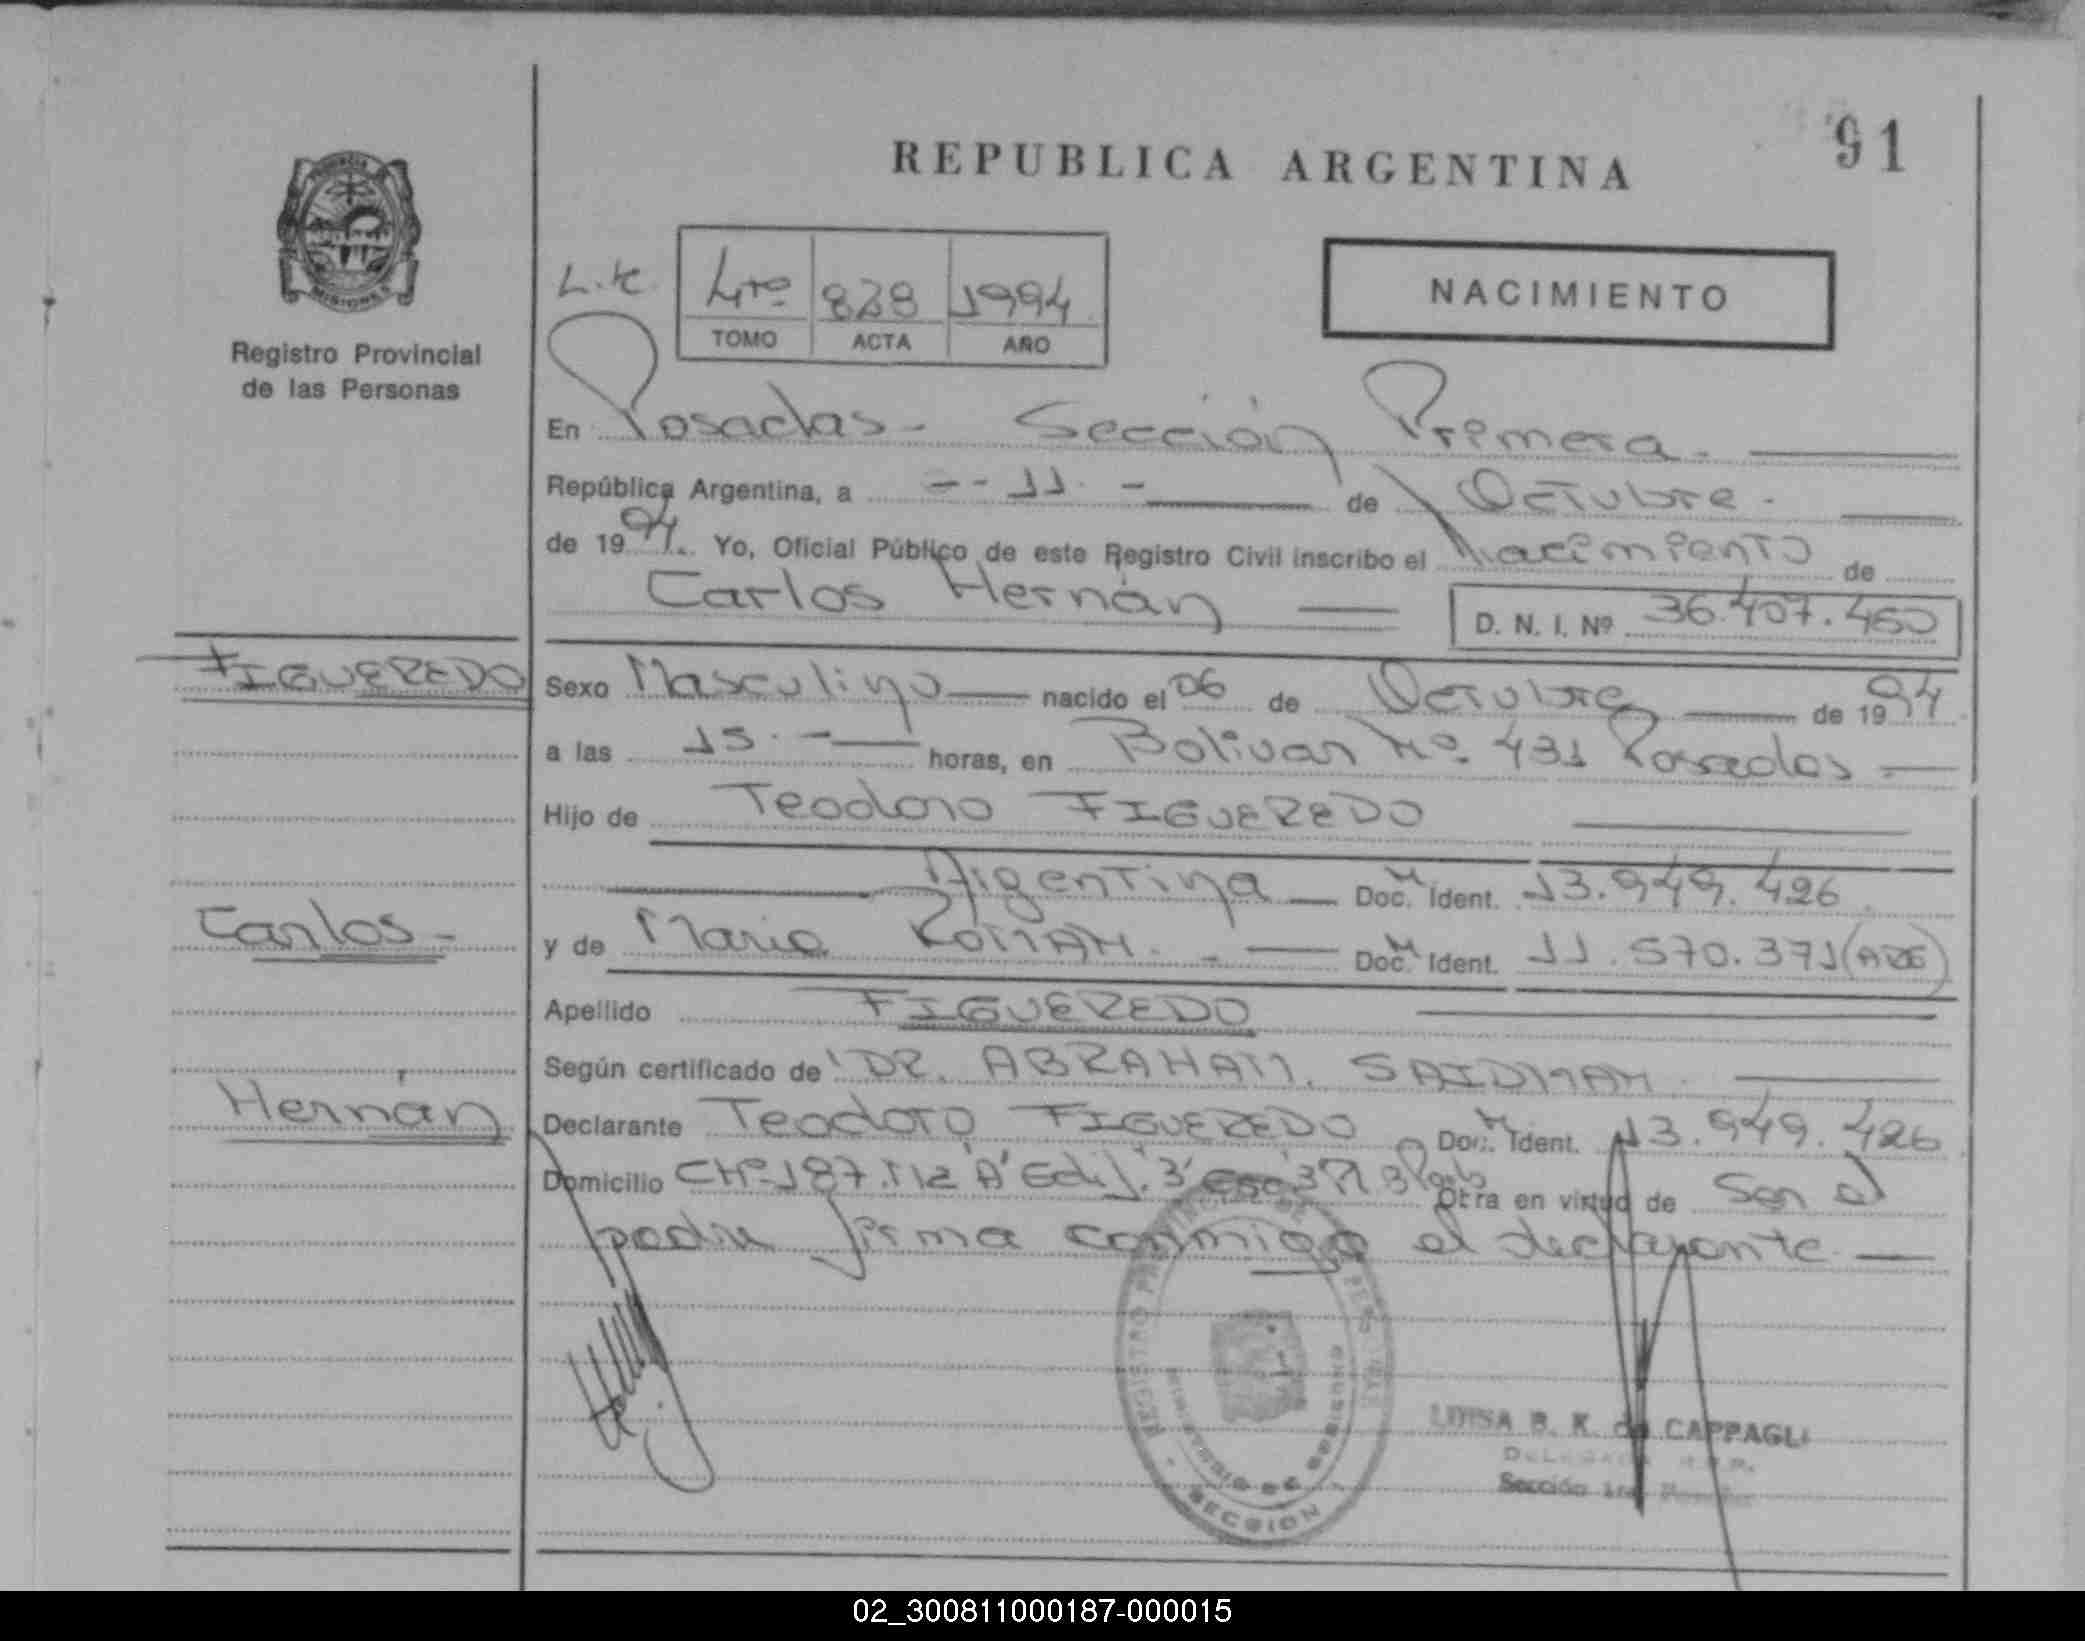 REPUBLICA ARGENTINA
91
MISIONES
Registro Provincial
de las Personas
4to 828 1994
TOMO ACTA AÑO
NACIMIENTO
En Posadas - Sección Primera.
República Argentina, a -- 11 - de Octubre -
de 1994. Yo, Oficial Público de este Registro Civil inscribo el Nacimiento de
Carlos Hernán D. N. I. Nº 36.407.460
FIGUEREDO
Sexo Masculino nacido el 06 de Octubre de 1994
a las 15 - horas, en Bolivar Nº 431 Posadas -
Hijo de Teodoro FIGUEREDO
Argentina Doc. M Ident. 13.949.426
Carlos -
y de Maria ROMAN. - Doc. M Ident. 11.570.371 (ARG)
Apellido FIGUEREDO
Según certificado de DR. ABRAHAM. SAIDMAN
Hernán
Declarante Teodoro FIGUEREDO Doc. M Ident. 13.949.426
Domicilio CHº 187 "A" Edif. 3 Otra en virtud de Ser el
padre firma conmigo el declarante
REGISTRO PROVINCIAL DE LAS PERSONAS
MINISTERIO DE GOBIERNO
SECCION 1
LUISA B. K. de CAPPAGLI
Sección 1ra.
02_300811000187-000015